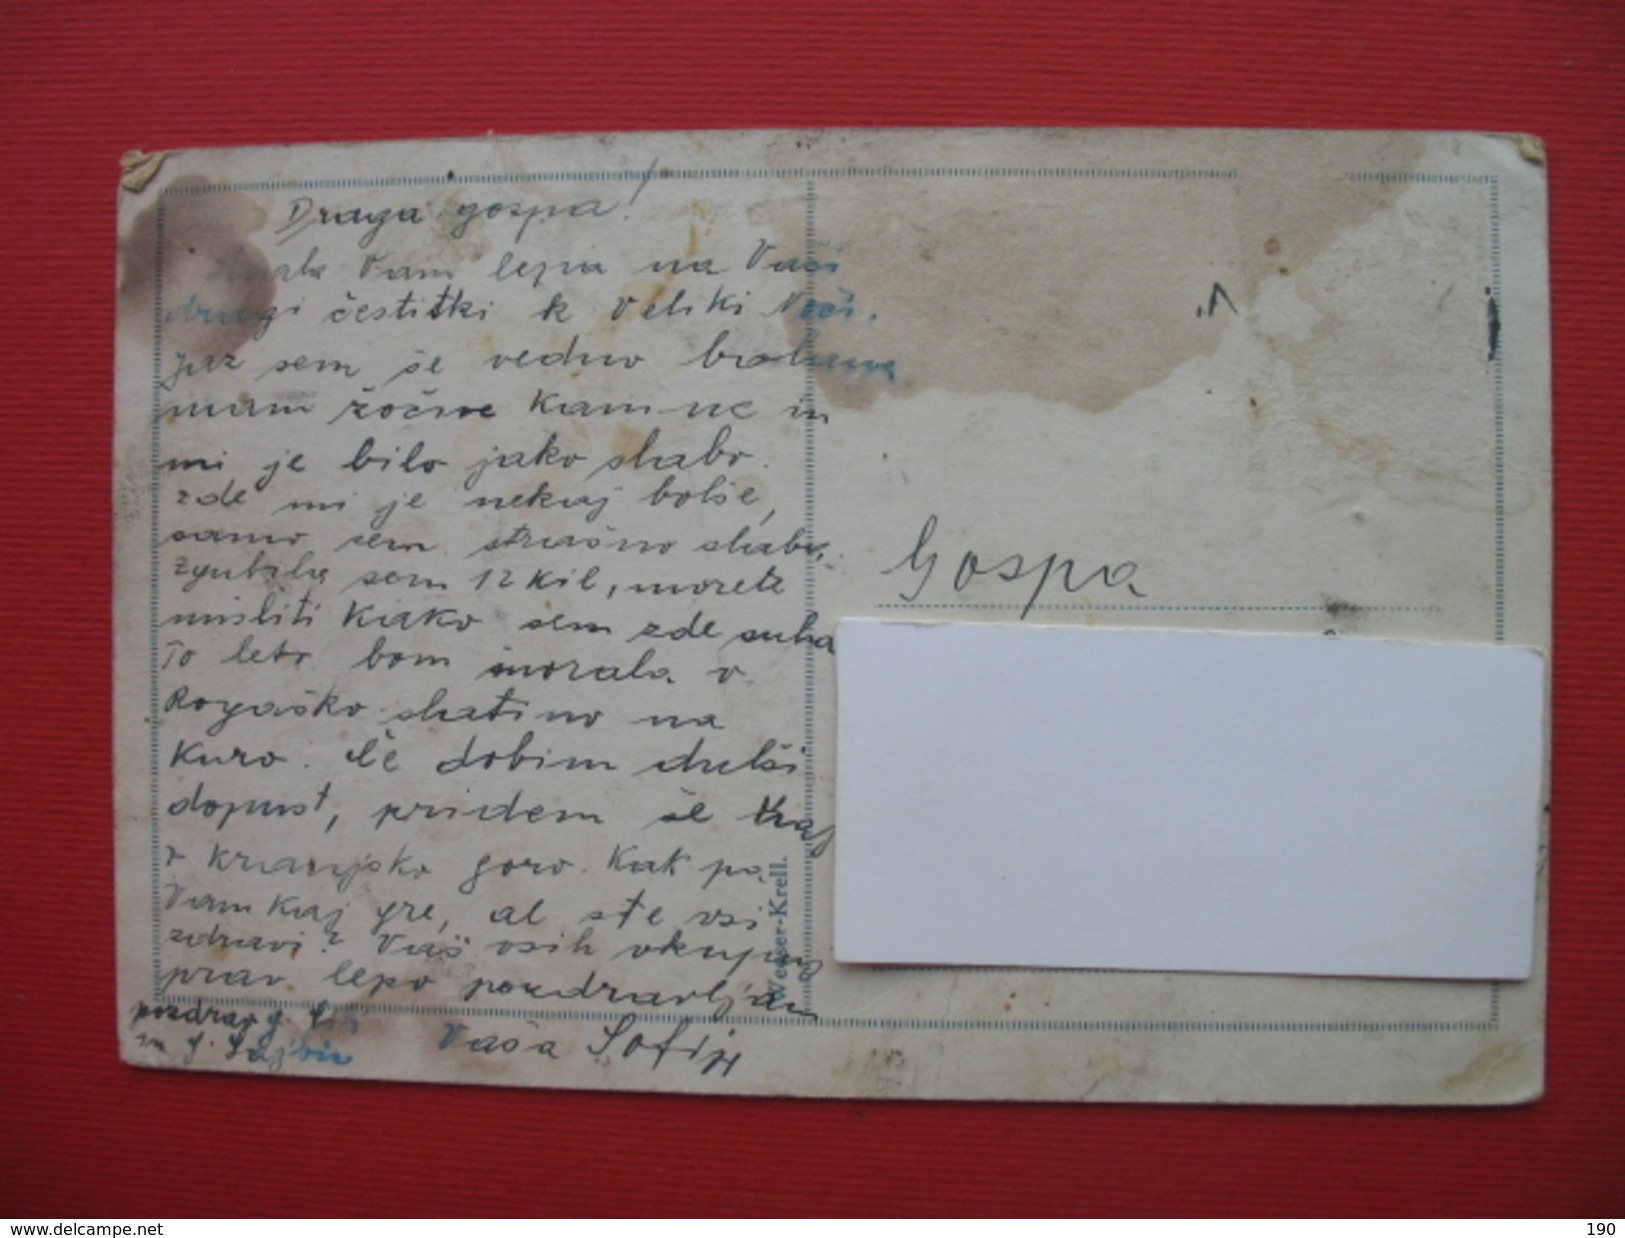 Draga gospa!
Hvala Vam lepa na Vaši
dragi čestitki k Veliki Noči.
Jaz sem še vedno bolana
mam žočne kamne in
mi je bilo jako slabo.
zde mi je nekaj bolše,
samo sem strašno slaba.
zgubila sem 12 kil, morete
misliti kako sem zde suha
To leto bom morala v
Rogaško slatino na
kuro. Če dobim dulši
dopust, pridem še kaj
v kranjsko goro. Kak pa
Vam kaj gre, al ste vsi
zdravi? Vas vsih vkupaj
prav lepo pozdravljam
pozdrav g.
in g.
Vaša Sofija
Gospa
Weeser-Krell.
www.delcampe.net
190